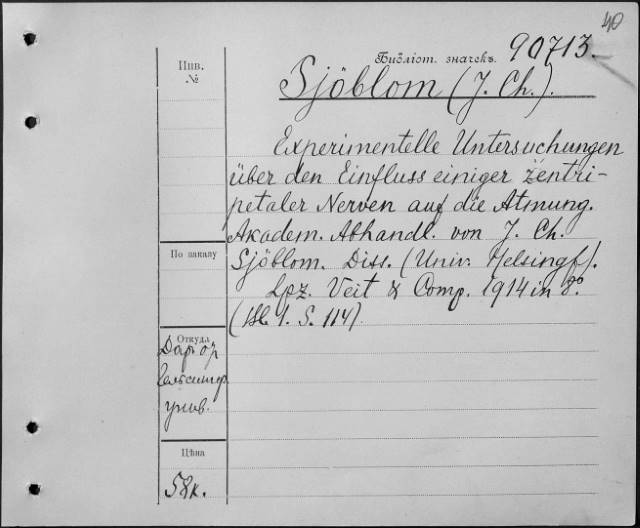 40
Библіот. значекъ. 90713.
Инв.
№
Sjöblom (J. Ch.).
Experimentelle Untersuchungen
über den Einfluss einiger zentri-
petaler Nerven auf die Atmung.
Akadem. Abhandl. von J. Ch.
По заказу
Sjöblom. Diss. (Univ. Helsingf.).
Lpz. Veit & Comp. 1914 in 8º.
1. S. 114)
Откуда
Дар
унив.
Цѣна
58к.